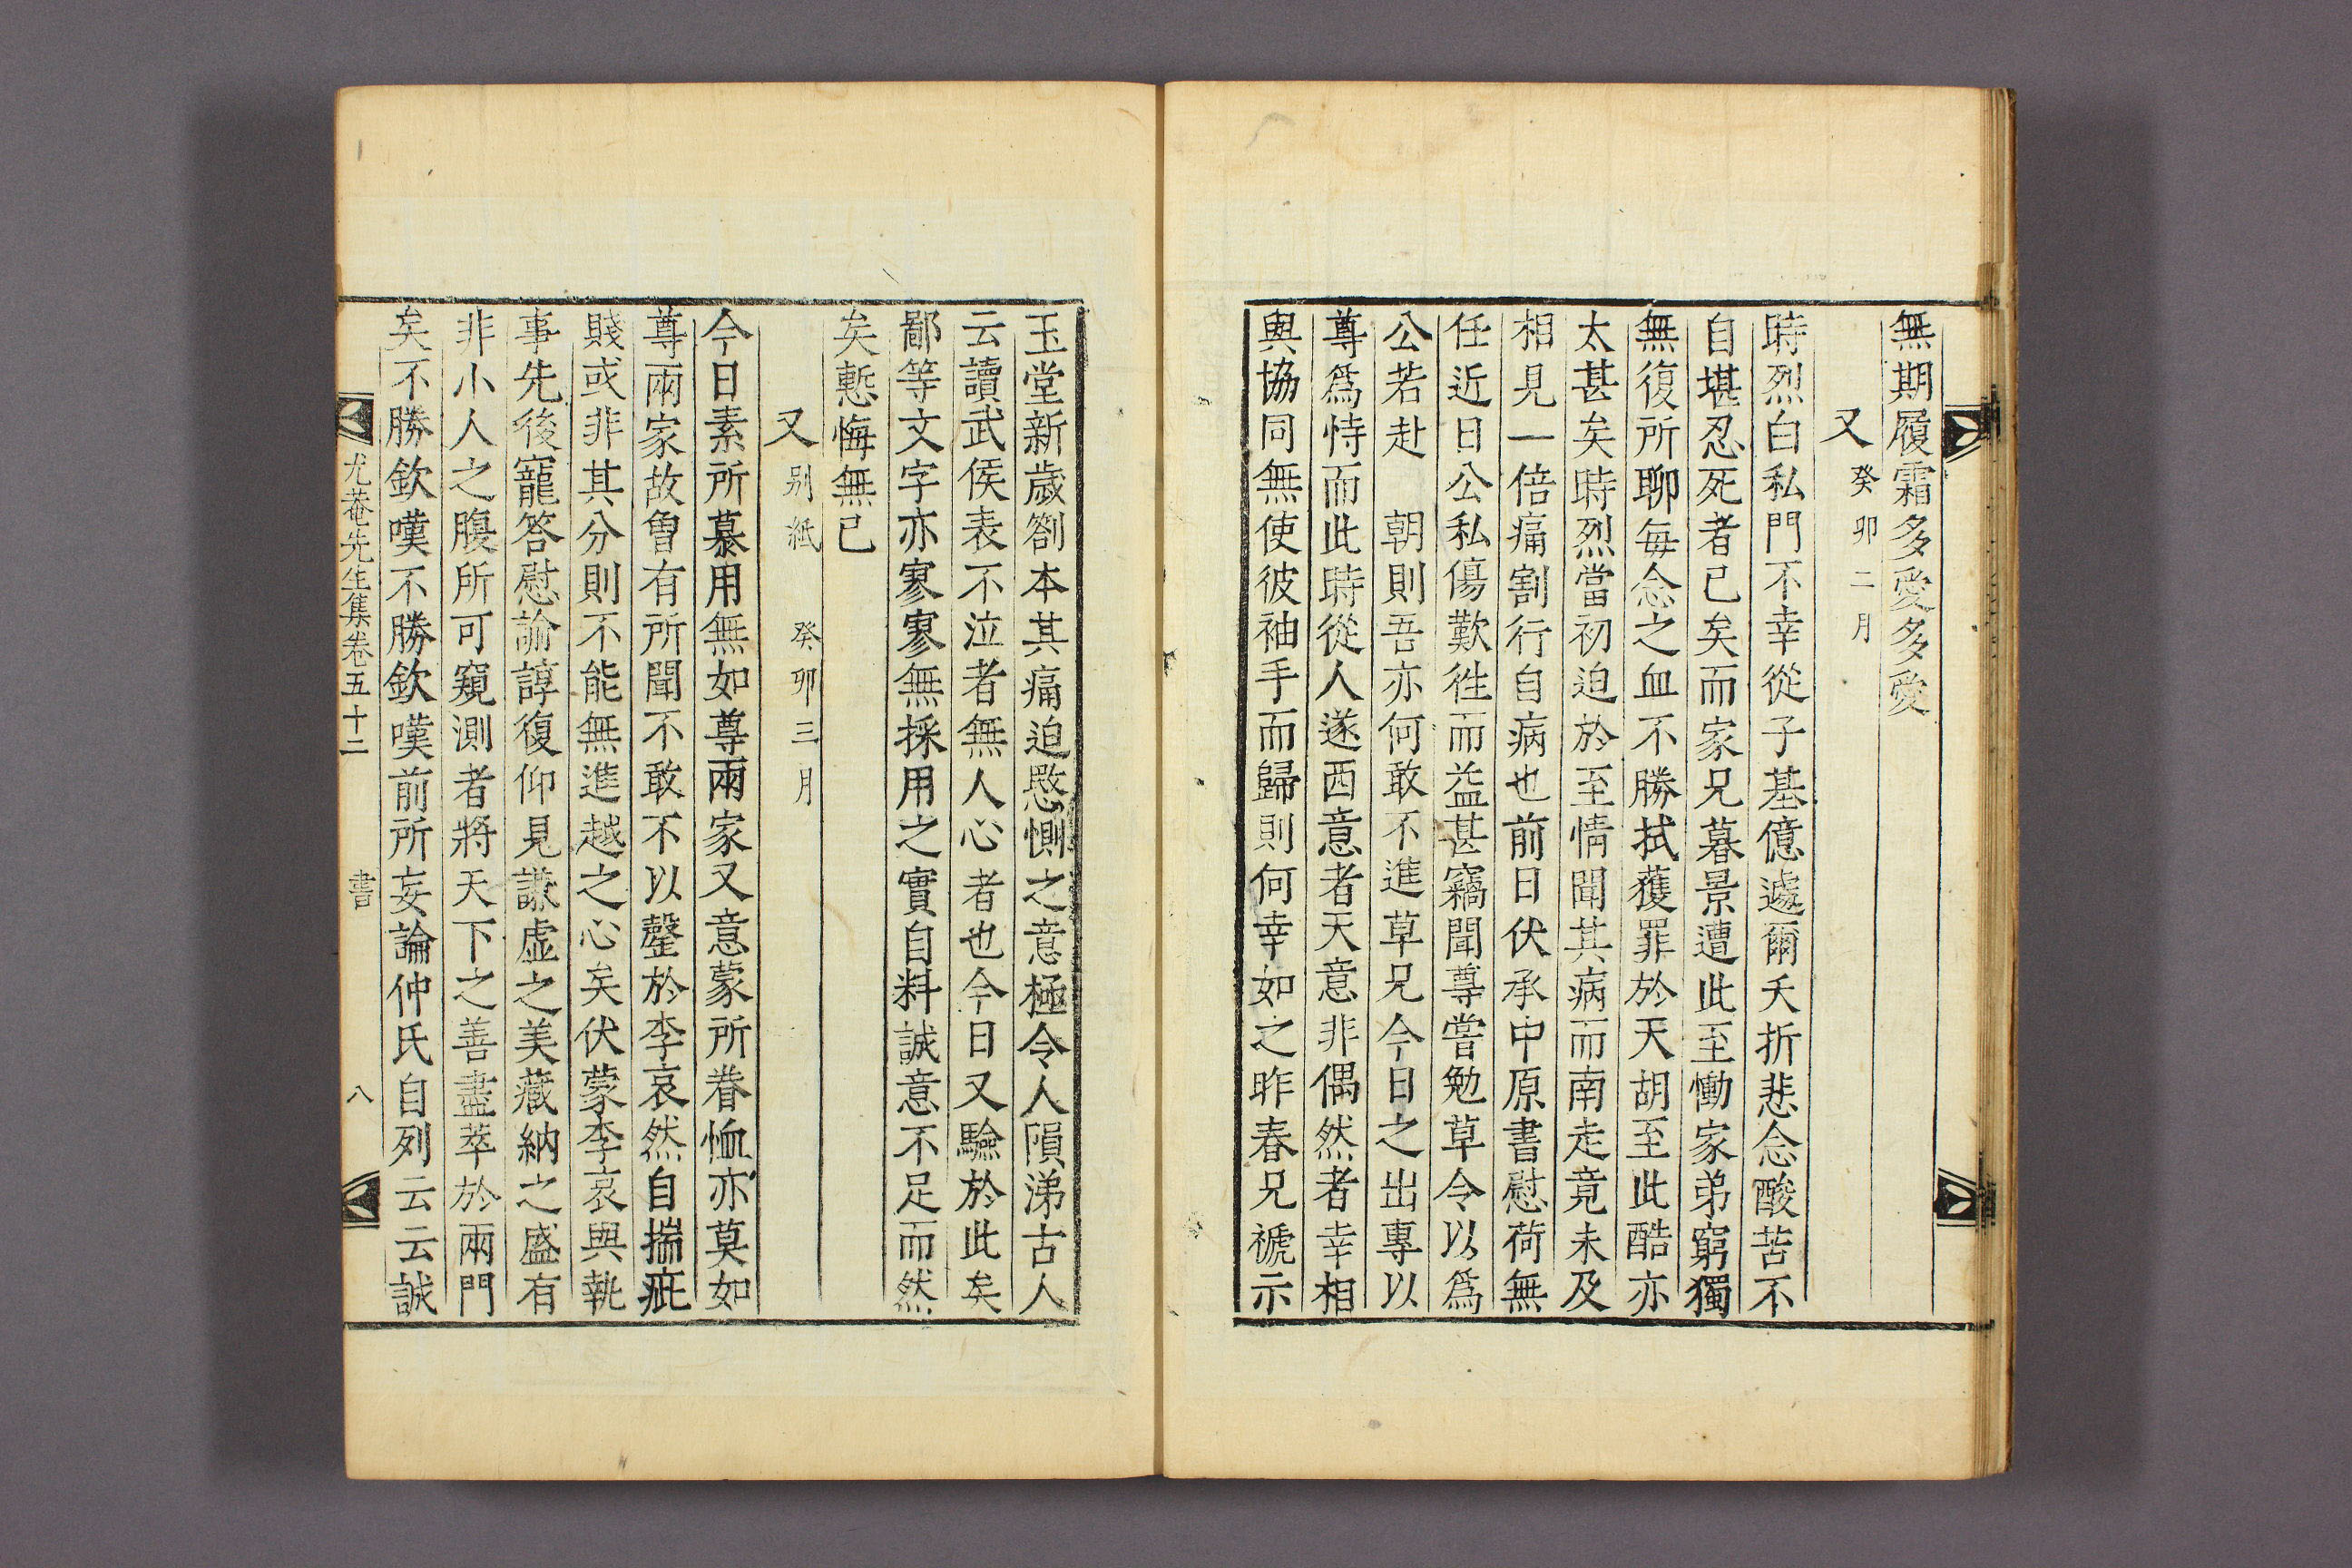 無期履霜多愛多愛
又 癸卯二月
時烈白私門不幸從子基億遽爾夭折悲念酸苦不
自堪忍死者已矣而家兄暮景遭此至慟家弟窮獨
無復所聊每念之血不勝拭獲罪於天胡至此酷亦
太甚矣時烈當初迫於至情聞其病而南走竟未及
相見一倍痛割行自病也前日伏承中原書慰荷無
任近日公私傷歎徃而益甚竊聞尊嘗勉草令以爲
公若赴 朝則吾亦何敢不進草兄今日之出專以
尊爲恃而此時從人遂西意者天意非偶然者幸相
與協同無使彼袖手而歸則何幸如之昨春兄褫示
玉堂新歲劄本其痛迫慇惻之意極令人隕涕古人
云讀武侯表不泣者無人心者也今日又驗於此矣
鄙等文字亦寥寥無採用之實自料誠意不足而然
矣慙悔無已
又 别紙 癸卯三月
今日素所慕用無如尊兩家又意蒙所眷恤亦莫如
尊兩家故曾有所聞不敢不以罄於李哀然自揣疵
賤或非其分則不能無進越之心矣伏蒙李哀與執
事先後寵答慰諭諄復仰見謙虛之美藏納之盛有
非小人之腹所可窺測者將天下之善盡萃於兩門
矣不勝欽嘆不勝欽嘆前所妄論仲氏自列云云誠
尤菴先生集卷五十二 書 八